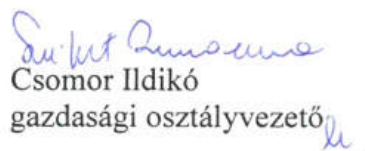 Csomor Ildikó
gazdasági osztályvezető